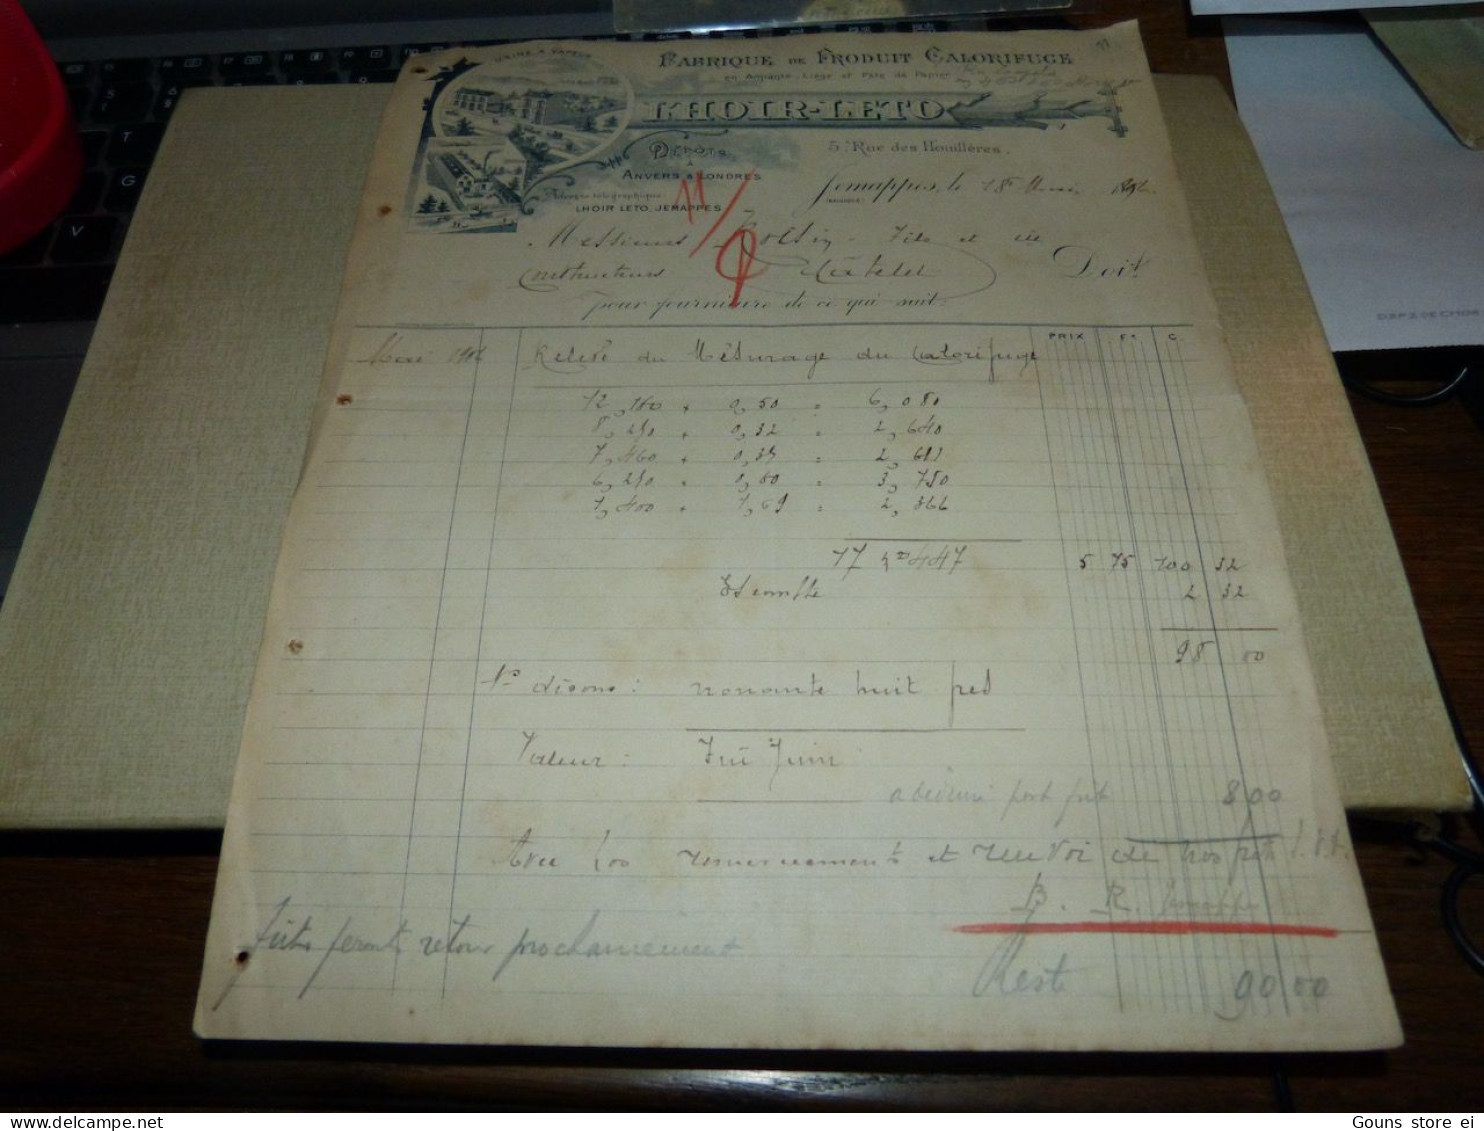 USINE A VAPEUR
FABRIQUE DE PRODUIT CALORIFUGE
en Amiante-Liège et Pâte de Papier
LHOIR-LETO
DÉPOTS
A
ANVERS & LONDRES
5, Rue des Houillères.
Adresse télégraphique:
LHOIR LETO, JEMAPPES
11/9
Jemappes, le 18 Mai
Messieurs et Cie
Constructeurs Châtelet Doit
pour fourniture de ce qui suit:
PRIX Fs C.
Mai Relevé du Mesurage du Calorifuge
12,160 × 0,50 = 6,080
8,250 × 0,32 = 2,640
7,460 × 0,35 = 2,611
6,250 × 0,60 = 3,750
1,400 × 1,69 = 2,366
17 447 5 75 100 32
Escompte 2 32
98 00
Ns disons: nonante huit
Valeur: Fin Juin
a déduire port fût 8,00
Avec nos remerciements et renvoi de nos
B. R. Jemappes
fûts feront retour prochainement
Reste 90 00
Gouns store ei